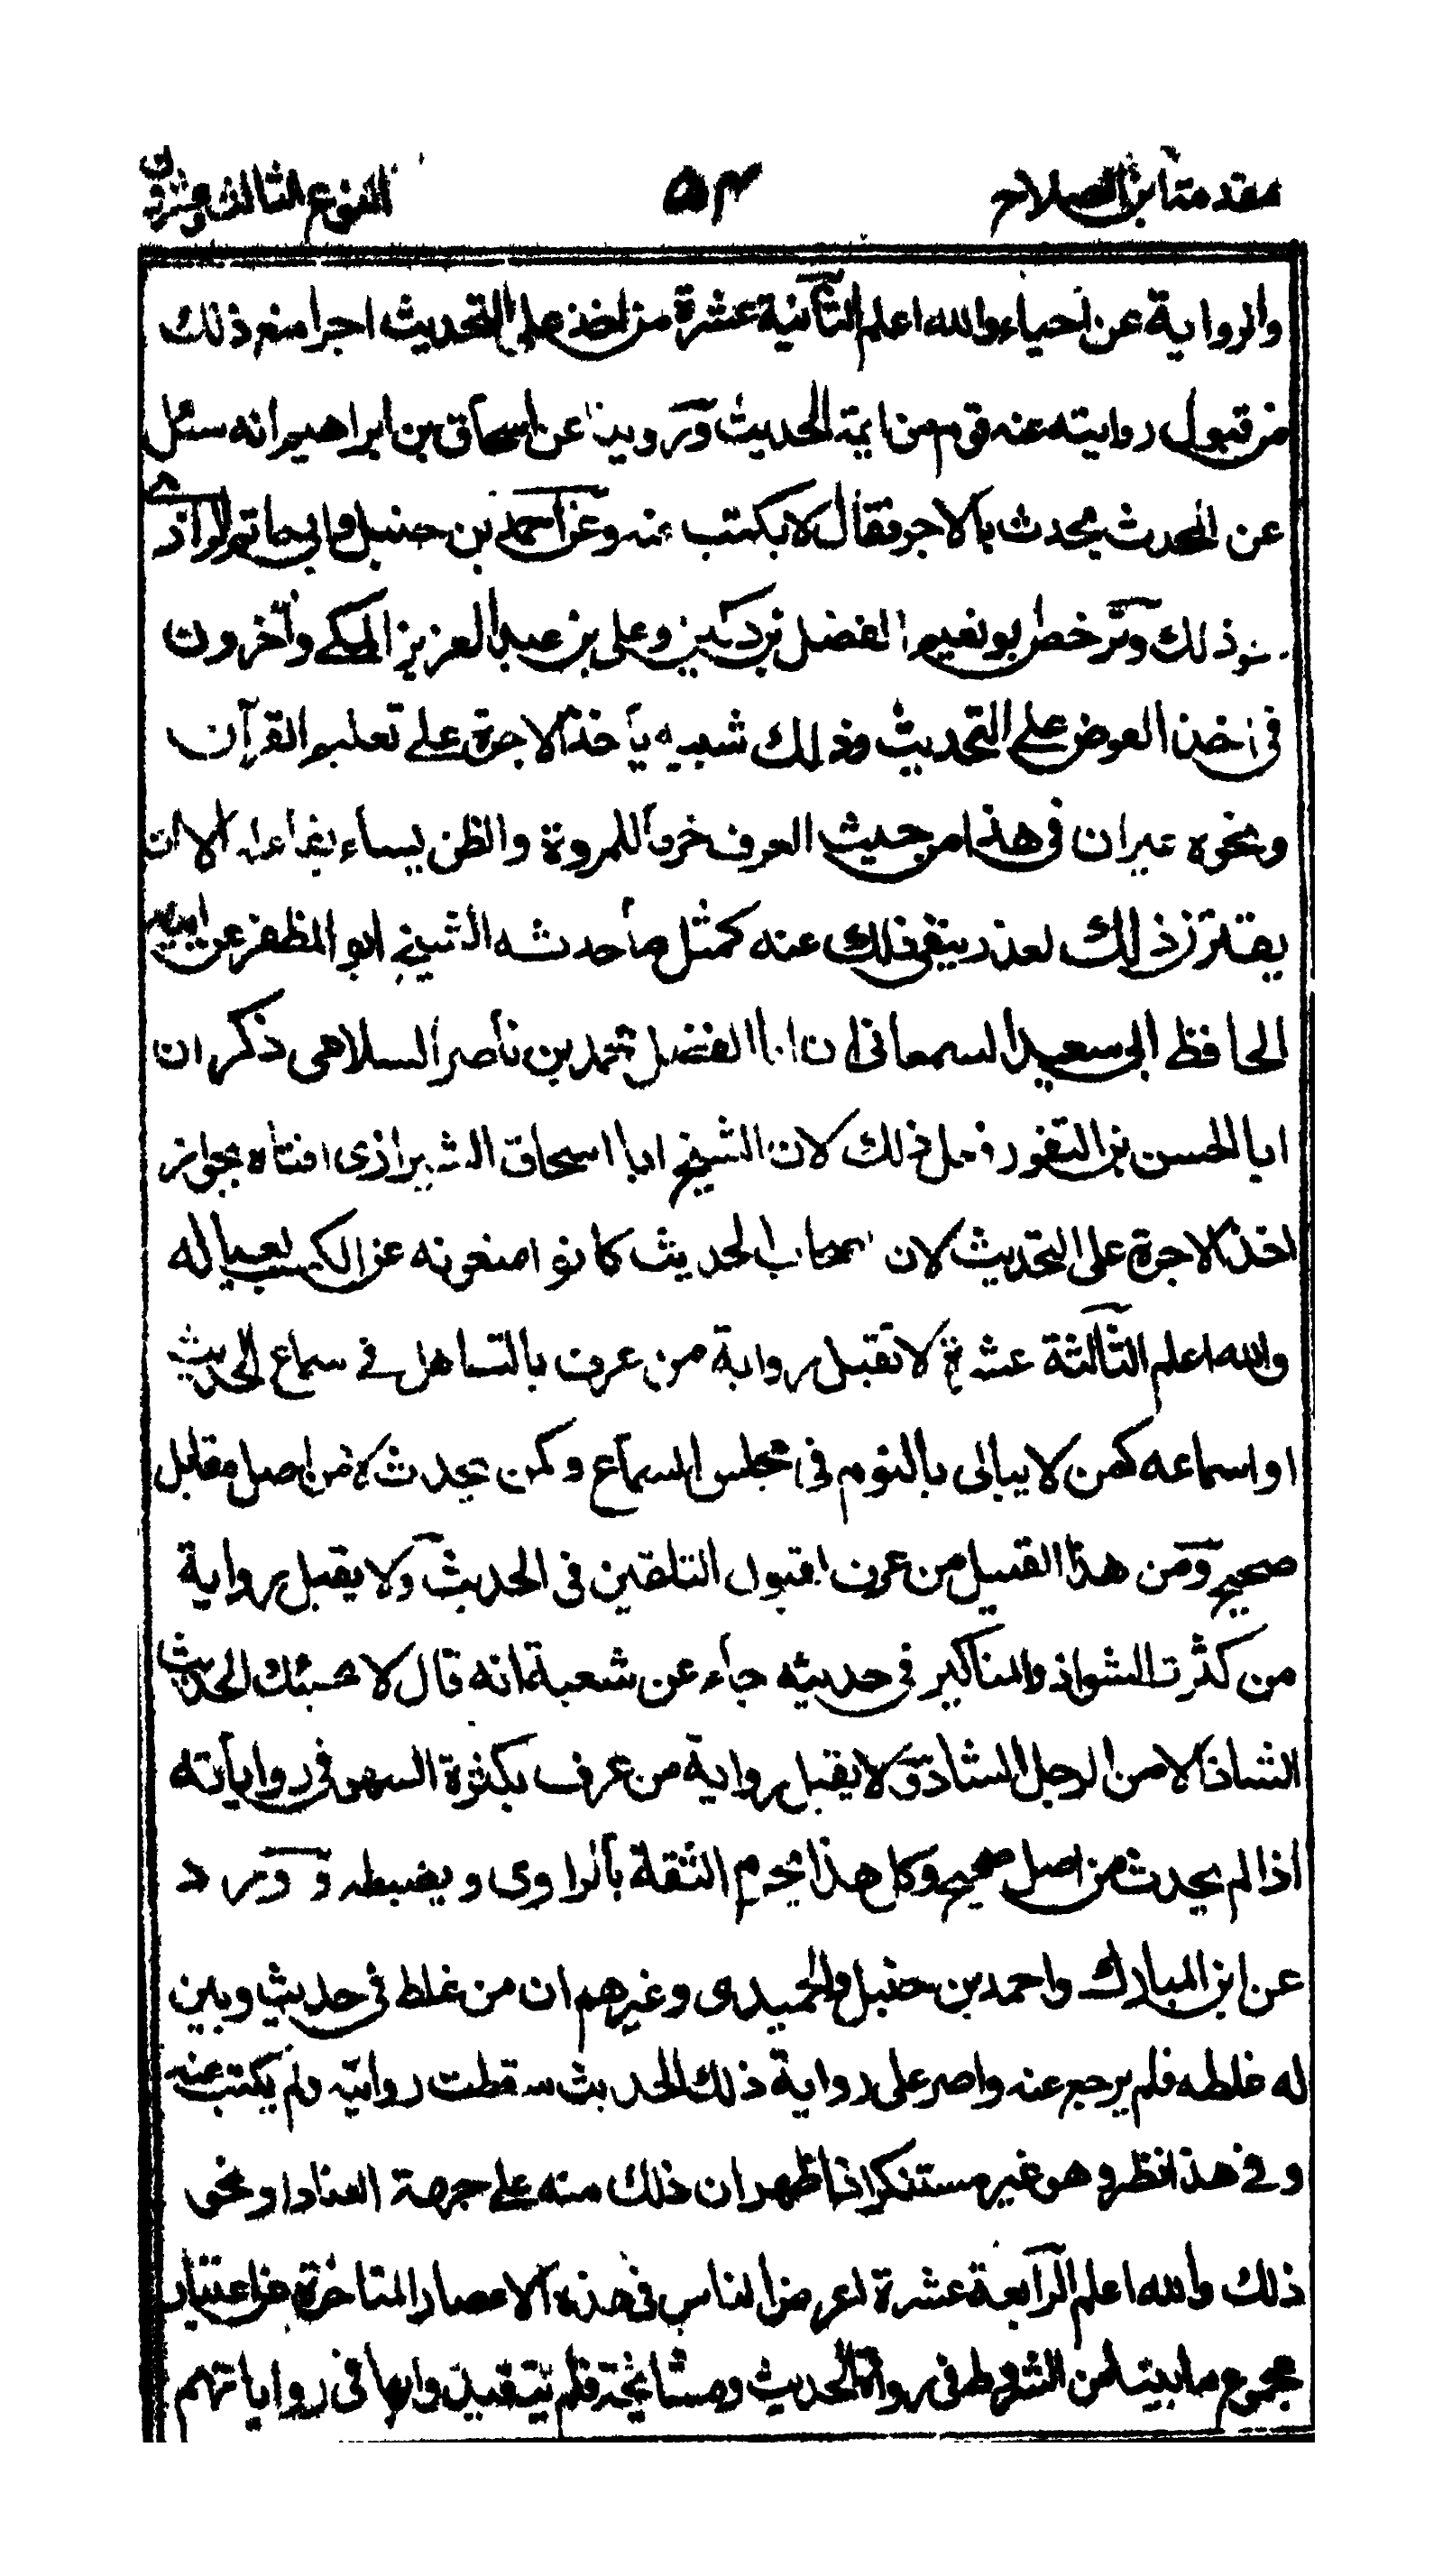 مقدمة ابن الصلاح
۵۴
النوع الثالث وعشرون
والرواية عن احياء والله اعلم الثانية عشرة من اخذ على التحديث اجرا منع ذلك
من قبول روايته عند قوم من ائمة الحديث وروينا عن اسحاق بن ابراهيم انه سئل
عن المحدث يحدث بالاجر فقال لا يكتب عنه وعن احمد بن حنبل وابي حاتم الرازي
نحو ذلك وترخص ابو نعيم الفضل بن دكين وعلى بن عبد العزيز المكي وآخرون
في اخذ العوض على التحديث وذلك شبيه بأخذ الاجرة على تعليم القرآن
ونحوه غير ان في هذا من حيث العرف خرما للمروة والظن يساء بفاعله الا ان
يقترن ذلك لعذر ينفي ذلك عنه كمثل ما حدثنيه الشيخ ابو المظفر عن ابيه
الحافظ ابي سعيد السمعاني ان ابا الفضل محمد بن ناصر السلامي ذكر ان
ابا الحسن بن النقور فعل ذلك لان الشيخ ابا اسحاق الشيرازي افتاه بجواز
اخذ الاجرة على التحديث لان اصحاب الحديث كانوا يمنعونه عن الكسب لعياله
والله اعلم الثالثة عشرة لا تقبل رواية من عرف بالتساهل في سماع الحديث
او اسماعه كمن لا يبالى بالنوم في مجلس السماع وكمن يحدث لا من اصل مقابل
صحيح ومن هذا القبيل من عرف بقبول التلقين في الحديث ولا يقبل رواية
من كثرت الشواذ والمناكير في حديثه جاء عن شعبة انه قال لا يجيئك الحديث
الشاذ الا من الرجل الشاذ ولا يقبل رواية من عرف بكثرة السهو في رواياته
اذا لم يحدث من اصل صحيح وكل هذا يخرم الثقة بالراوى ويضبطه وورد
عن ابن المبارك واحمد بن حنبل والحميدى وغيرهم ان من غلط في حديث وبين
له غلطه فلم يرجع عنه واصر على رواية ذلك الحديث سقطت روايته ولم يكتب عنه
وفي هذا نظر وهو غير مستنكر اذا ظهر ان ذلك منه على جهة العناد او نحو
ذلك والله اعلم الرابعة عشرة اعرض الناس في هذه الاعصار المتاخرة عن اعتبار
مجموع ما بينا من الشروط في رواة الحديث ومشائخه فلم يتقيدوا بها في رواياتهم